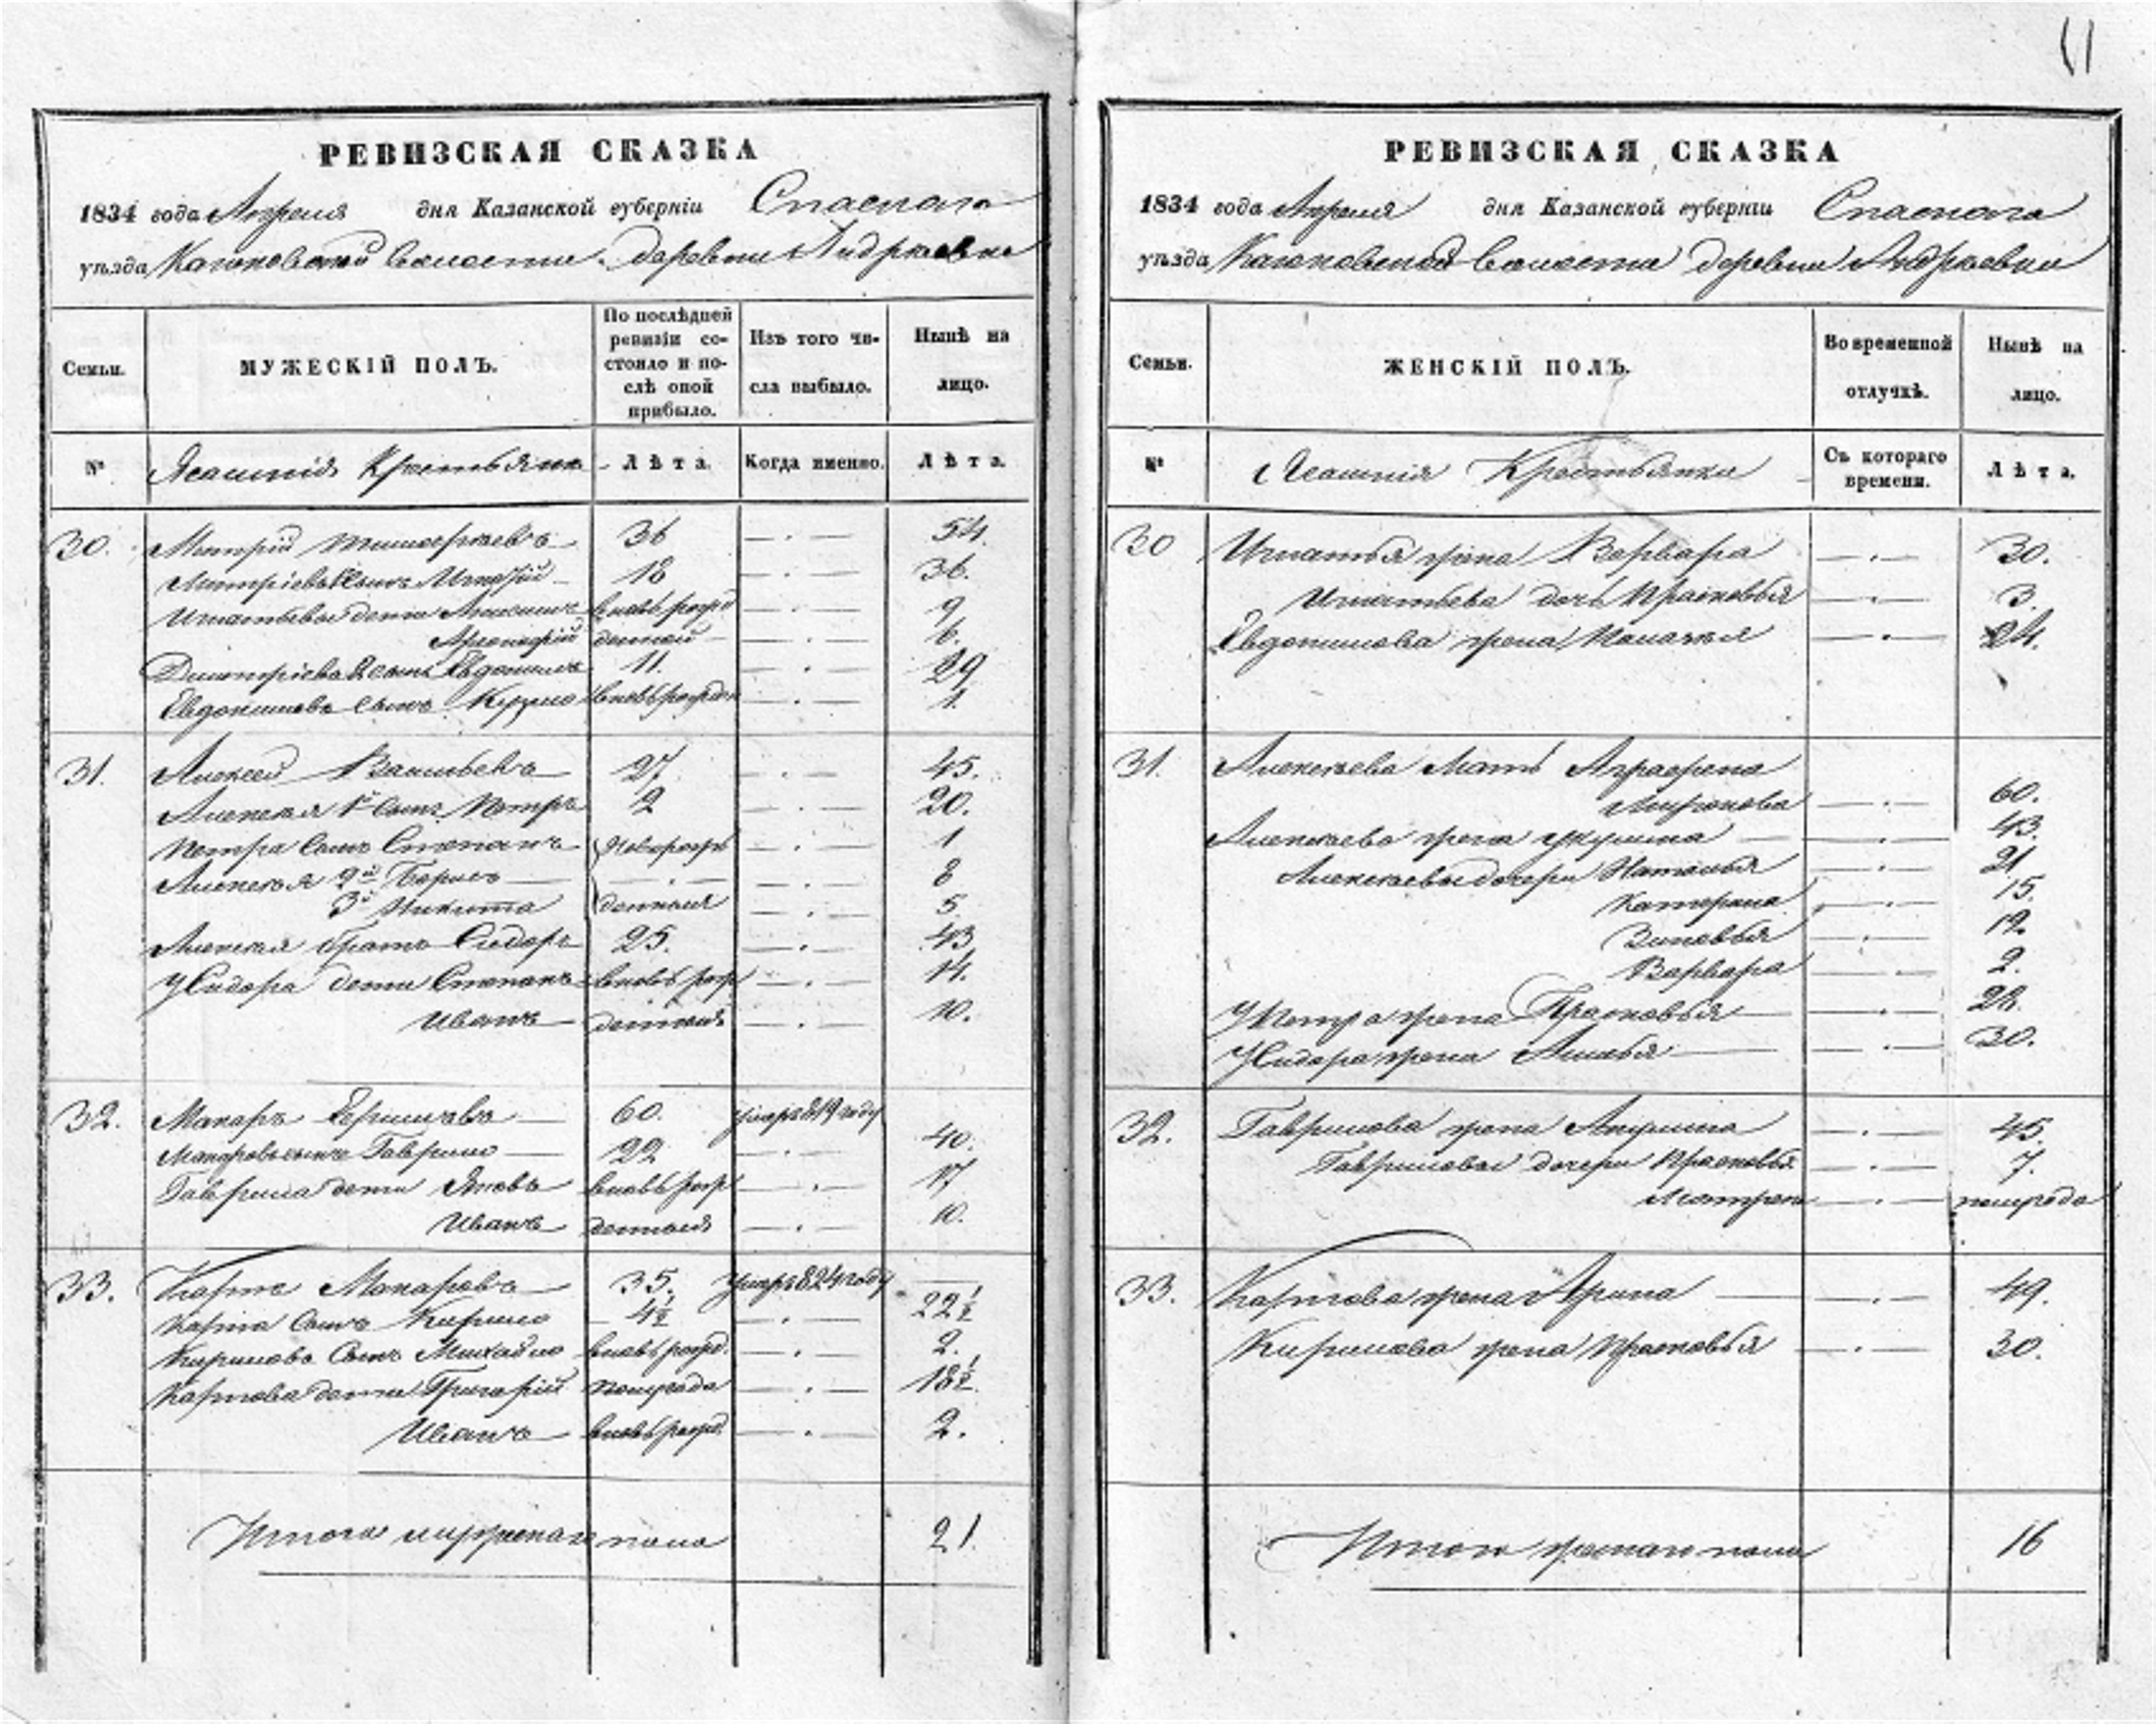 11
РЕВИЗСКАЯ СКАЗКА
1834 года Апреля дня Казанской губерніи Спаскаго
уѣзда волости деревни
Семьи.
МУЖЕСКІЙ ПОЛЪ.
По послѣдней
ревизіи со-
стояло и по-
слѣ оной
прибыло.
Изъ того чи-
сла выбыло.
Нынѣ на
лицо.
№ Ясашнія Крестьяне Лѣта. Когда именно. Лѣта.
30. Митрій 36 54.
Митріева сынъ Игнатій 18 36.
Игнатьевы дети вновь рожд 9
денной 6.
Дмитріева 2 сынъ Евдокимъ 11. 29
Евдокимова сынъ вновь рожден 1.
31. Алексей Васильевъ 27 45.
Алексея 1й сынъ Петръ 2 20.
Петра сынъ Степанъ Новорожд 1
Алексея 2й Борисъ 8
3й Никита денныя 5
Алексея братъ Сидоръ 25. 43
У Сидора дети Степанъ вновь рож 14.
Иванъ денныя 10.
32. Макаръ 60. умеръ 819 году
Макаровъ сынъ Гаврило 22 40.
Гаврила дети Яковъ вновь рож 17
Иванъ денныя 10.
33. Карпъ Макаровъ 35. умеръ 824 году
Карпа сынъ Кирило 4½ 22½
Кирилова сынъ Михайло вновь рожд. 2.
Карпова дети Григорій полугода 18½
Иванъ вновь рожд. 2.
Итого мужеска пола 21.
РЕВИЗСКАЯ СКАЗКА
1834 года Апреля дня Казанской губерніи Спаскаго
уѣзда волости деревни
Семьи.
ЖЕНСКІЙ ПОЛЪ.
Во временной
отлучкѣ.
Нынѣ на
лицо.
№ Ясашнія Крестьянки Съ котораго времени. Лѣта.
30 Игнатья жена Варвара 30.
Игнатьева дочь Прасковья 3.
Евдокимова жена 24.
31. Алексеева мать Аграфена
60.
Алексеева жена 43.
Алексеевы дочери Наталья 21
Катерина 15.
Зиновья 12.
Варвара 2.
У Петра жена Прасковья
У Сидора жена 30.
32. Гаврилова жена Акулина 45.
Гавриловы дочери Прасковья 7.
Матрена полугода
33. Карпова жена Арина 49.
Кирилова жена Прасковья 30.
Итого женска пола 16